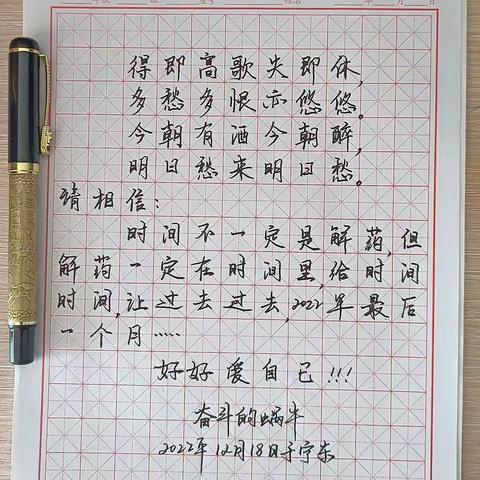 得即高歌失即休,
多愁多恨亦悠悠。
今朝有酒今朝醉,
明日愁来明日愁。
请相信:
时间不一定是解药,但
解药一定在时间里,给时间
时间,让过去过去,2022年最后
一个月……
好好爱自己!!!
奋斗的蜗牛
2022年12月18日于宁东